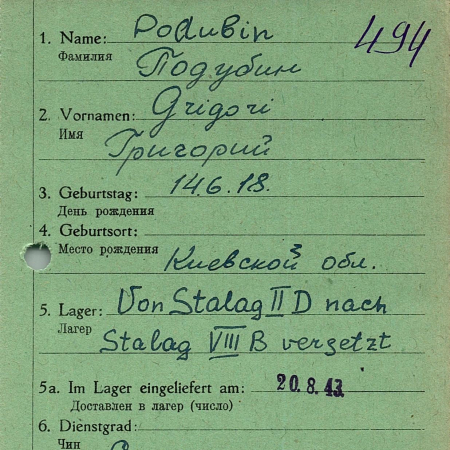 1. Name: Podubin
494
Фамилия
Подубин
2. Vornamen: Grigori
Имя
Григорий
3. Geburtstag: 14.6.18.
День рождения
4. Geburtsort:
Место рождения Киевской обл.
5. Lager: Von Stalag II D nach
Лагер
Stalag VIII B versetzt
5a. Im Lager eingeliefert am: 20.8.43.
Доставлен в лагер (число)
6. Dienstgrad:
Чин